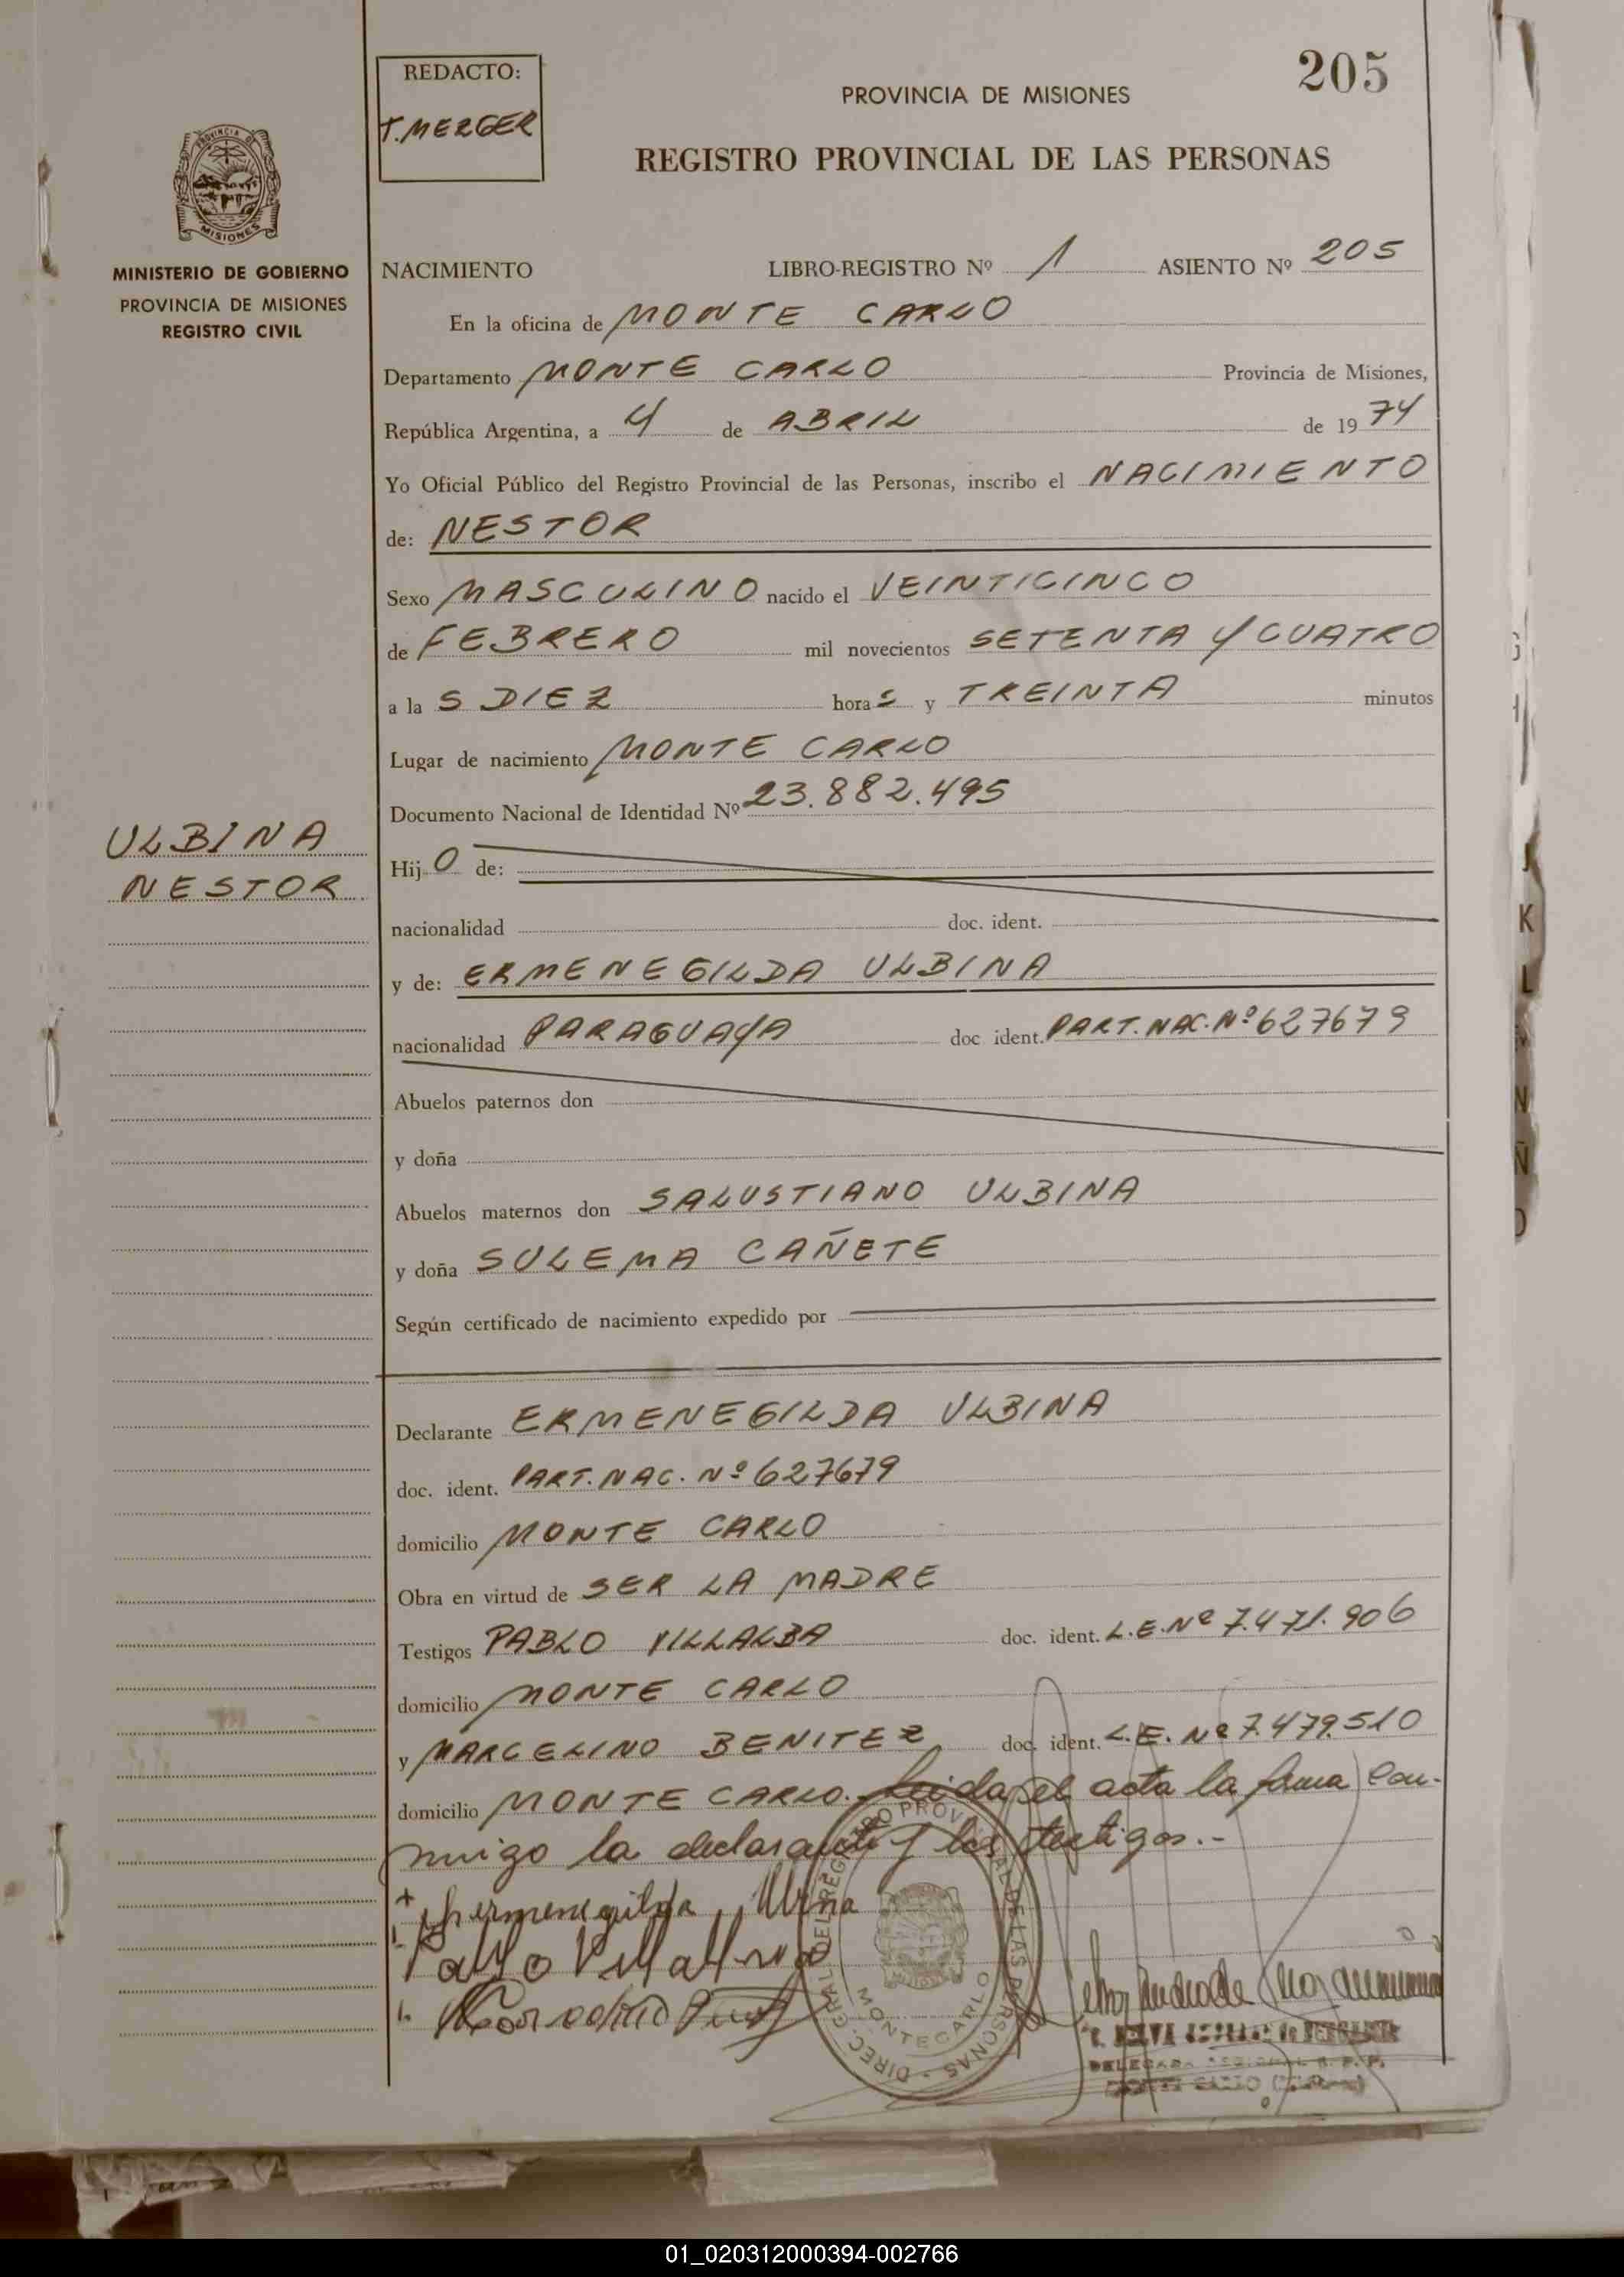 205
REDACTO:
T. MERGER
PROVINCIA DE MISIONES
REGISTRO PROVINCIAL DE LAS PERSONAS
PROVINCIA DE
MISIONES
MINISTERIO DE GOBIERNO
PROVINCIA DE MISIONES
REGISTRO CIVIL
ULBINA
NESTOR
NACIMIENTO LIBRO-REGISTRO Nº 1 ASIENTO Nº 205
En la oficina de MONTE CARLO
Departamento MONTE CARLO Provincia de Misiones,
República Argentina, a 4 de ABRIL de 19 74
Yo Oficial Público del Registro Provincial de las Personas, inscribo el NACIMIENTO
de: NESTOR
Sexo MASCULINO nacido el VEINTICINCO
de FEBRERO mil novecientos SETENTA Y CUATRO
a la S DIEZ hora S y TREINTA minutos
Lugar de nacimiento MONTE CARLO
Documento Nacional de Identidad Nº 23.882.495
Hij O de:
nacionalidad doc. ident.
y de: ERMENEGILDA ULBINA
nacionalidad PARAGUAYA doc ident. PART. NAC. Nº 627679
Abuelos paternos don
y doña
Abuelos maternos don SALUSTIANO ULBINA
y doña SULEMA CAÑETE
Según certificado de nacimiento expedido por
Declarante ERMENEGILDA ULBINA
doc. ident. PART. NAC. Nº 627679
domicilio MONTE CARLO
Obra en virtud de SER LA MADRE
Testigos PABLO VILLALBA doc. ident. L.E. Nº 7.471.906
domicilio MONTE CARLO
y MARCELINO BENITEZ doc. ident. L.E. Nº 7.479.510
domicilio MONTE CARLO. Leida el acta la firma con-
migo la declarante y los testigos.-
Hermenegilda
Pablo Villalba
DIREC. GRAL. DEL REGISTRO PROVINCIAL DE LAS PERSONAS
MONTECARLO
K
L
N
Ñ
01_020312000394-002766